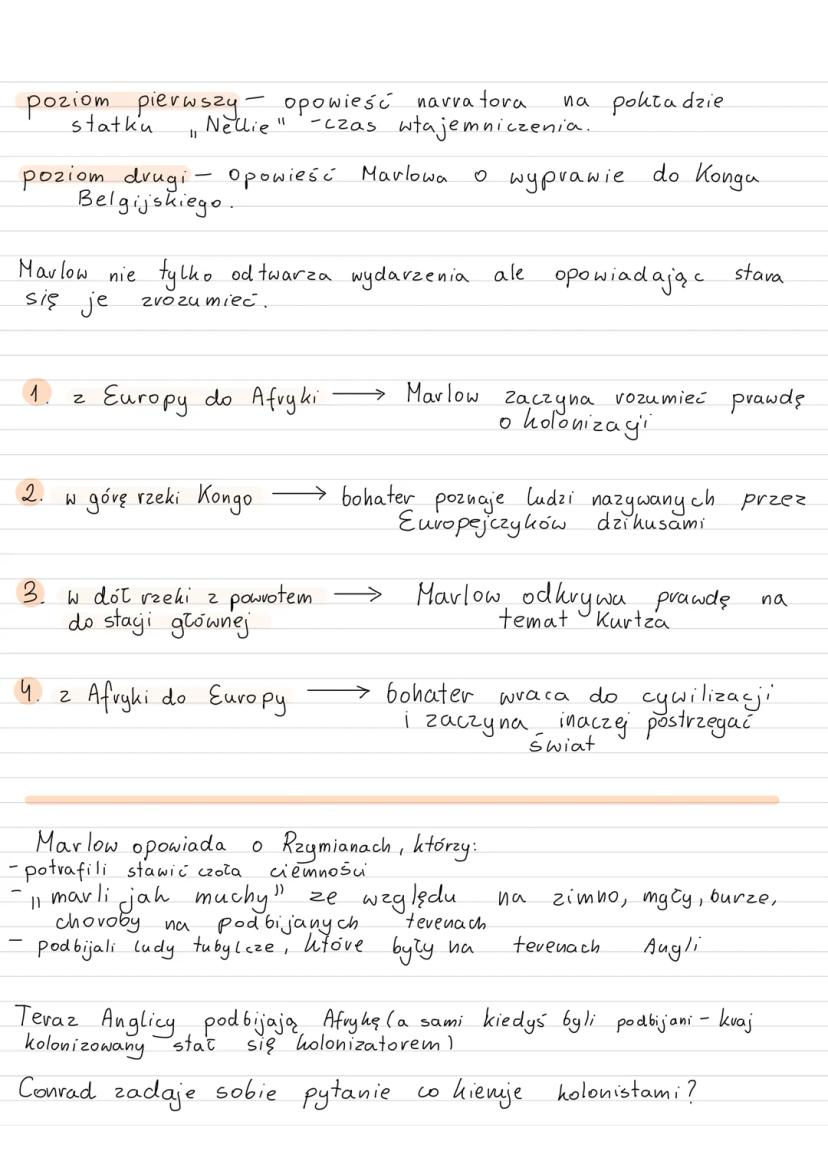 poziom pierwszy – opowieść narratora na pokładzie
statku „Nellie" - czas wtajemniczenia.
poziom drugi – opowieść Marlowa o wyprawie do Konga
Belgijskiego.
Marlow nie tylko odtwarza wydarzenia ale opowiadając stara
się je zrozumieć.
1. z Europy do Afryki → Marlow zaczyna rozumieć prawdę
o kolonizacji
2. w górę rzeki Kongo → bohater poznaje ludzi nazywanych przez
Europejczyków dzikusami
3. w dół rzeki z powrotem → Marlow odkrywa prawdę na
do stacji głównej temat Kurtza
4. z Afryki do Europy → bohater wraca do cywilizacji
i zaczyna inaczej postrzegać
świat
Marlow opowiada o Rzymianach, którzy:
- potrafili stawić czoła ciemności
- „marli jak muchy" ze względu na zimno, mgły, burze,
choroby na podbijanych terenach
- podbijali ludy tubylcze, które były na terenach Angli
Teraz Anglicy podbijają Afrykę (a sami kiedyś byli podbijani - kraj
kolonizowany stał się kolonizatorem)
Conrad zadaje sobie pytanie co kieruje kolonistami?